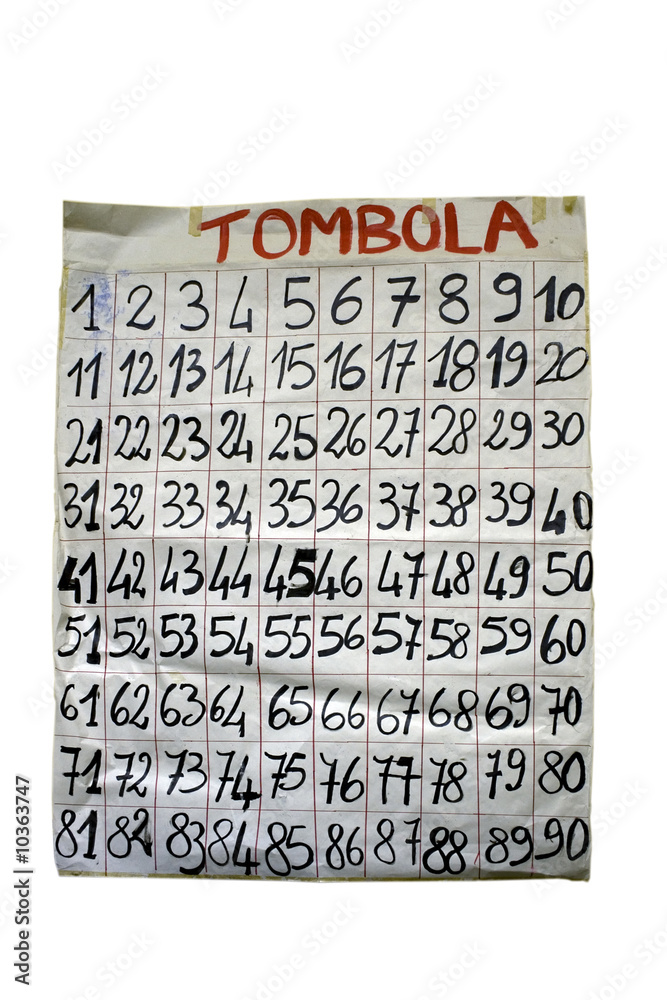 TOMBOLA
1 2 3 4 5 6 7 8 9 10
11 12 13 14 15 16 17 18 19 20
21 22 23 24 25 26 27 28 29 30
31 32 33 34 35 36 37 38 39 40
41 42 43 44 45 46 47 48 49 50
51 52 53 54 55 56 57 58 59 60
61 62 63 64 65 66 67 68 69 70
71 72 73 74 75 76 77 78 79 80
81 82 83 84 85 86 87 88 89 90
Adobe Stock | #10363747